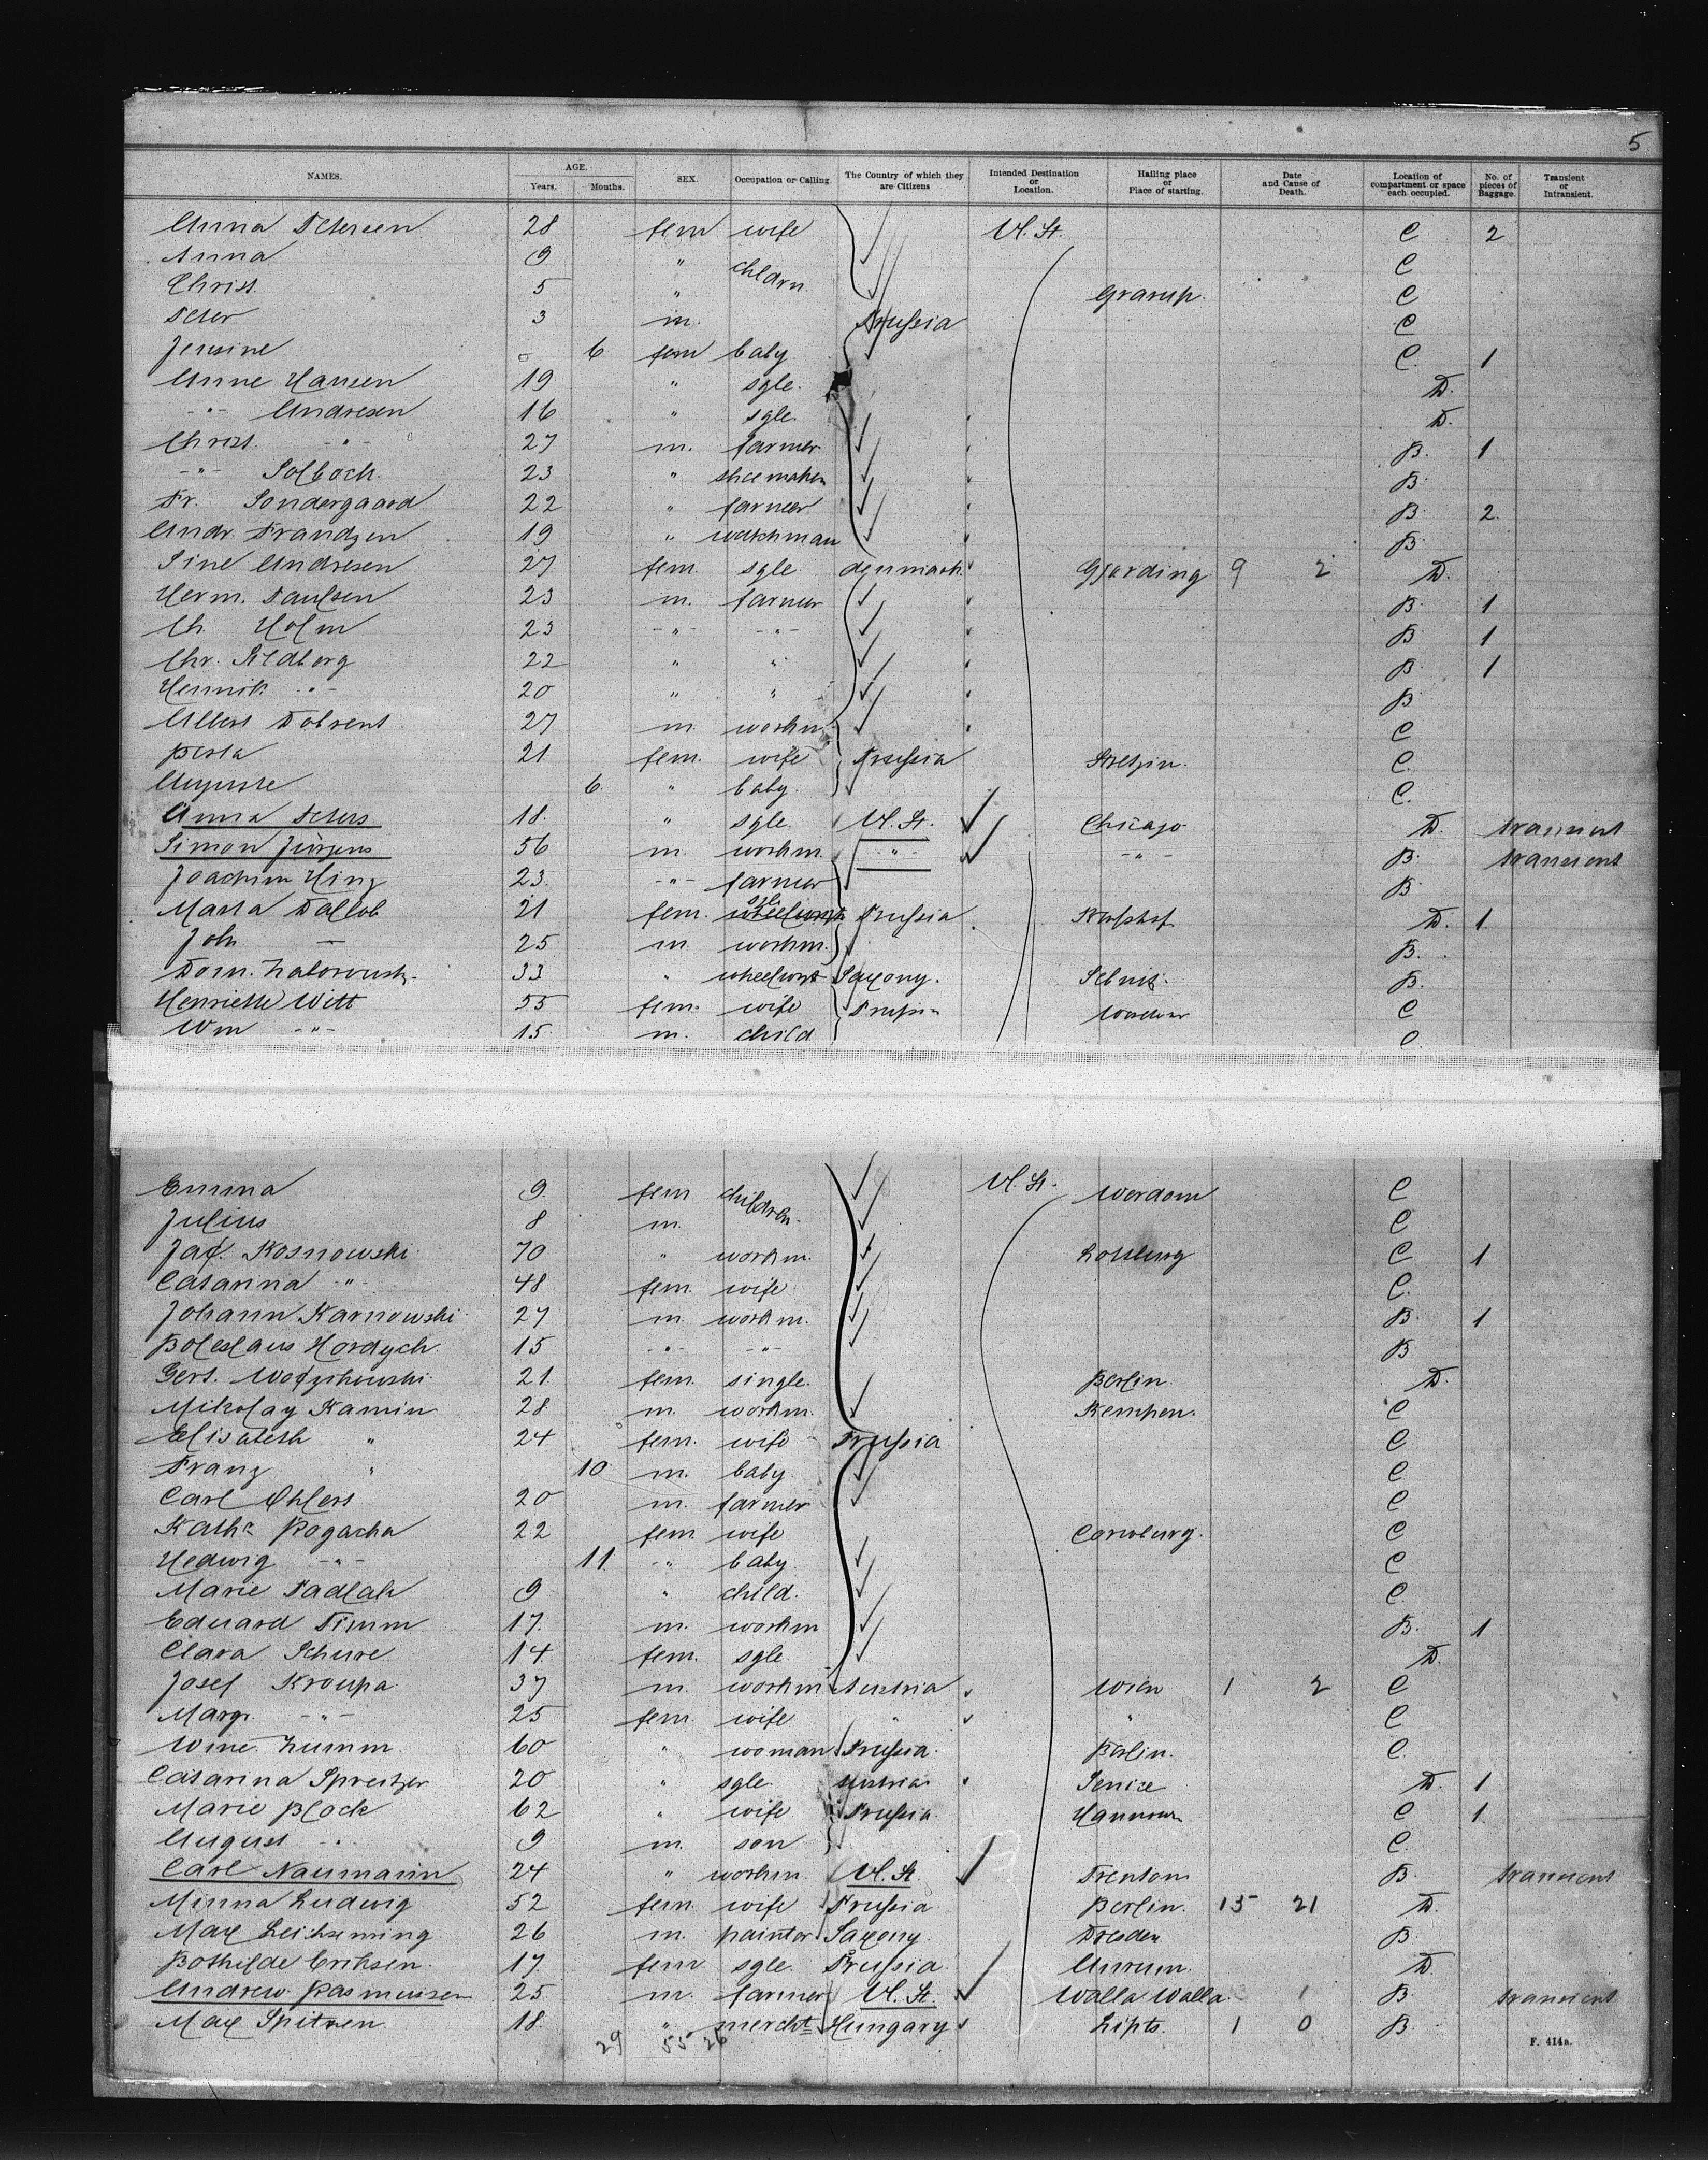 5
NAMES. AGE. Years. Months. SEX. Occupation or Calling. The Country of which they are Citizens Intended Destination or Location. Hailing place or Place of starting. Date and Cause of Death. Location of compartment or space each occupied. No. of pieces of Baggage. Transient or Intransient.
Anna Petersen 28 fem wife U. St. C 2
Anna 9 " C
Christ. 5 " Grarup. C
Peter 3 m. Prussia C
Jensine 6 fem baby C. 1
Anne Hansen 19 " sgle. D.
-"- Andresen 16 " sgle. D.
Christ. -"- 27 m. farmer B. 1
-"- 23 " shoemaker B.
Fr. Sondergaard 22 " farmer B. 2
Andr. Frandzen 19 " watchman B.
Sine Andresen 27 fem. sgle denmark 9 2 D.
Herm. Paulsen 23 m. farmer B. 1
Ch. Holm 23 -"- -"- B. 1
Chr. 22 " " B. 1
Henrik -"- 20 " " B
Albert 27 m. workm. C
Berta 21 fem. wife Prussia C.
Auguste 6 " baby. C.
Anna Peters 18. " sgle. U. St. Chicago D. transient
Simon Jürgens 56 m. workm. -"- -"- B. transient
Joachim Hinz 23. -"- farmer B
Marta 21 fem. sgle Prussia D. 1.
Joh. — 25 m workm. B.
Dom. 33 " wheelwrt Saxony. Sebnitz. B.
Henriette Witt 55 fem. wife Prussia C
Wm -"- 15. m. child C.
Emma 9. fem children. U. St. C
Julius 8 m. C
Jac. Kosnowski 70 " workm. C 1
Catarina -"- 48 fem. wife C.
Johann Karnowski 27 m. workm. B. 1
Boleslaus Hordych 15 -"- -"- B
Gert. 21. fem. single. Berlin. D.
Mikolay Kamin 28. m. workm. Kempen. C
Elisabeth " 24 fem. wife Prussia C
Franz " 10 m. baby C
Carl Ehlers 20 m. farmer C
Kath. Rogacka 22 fem. wife C
Hedwig -"- 11. -"- baby. C
Marie 9 " child. C
Eduard Timm 17. m. workm B. 1
Clara Schure 14. fem. sgle D.
Josef Kroupa 37 m. workm Austria Wien 1 2 C
Margr. -"- 25 fem. wife " " C
Wine. 60 " woman Prussia. Berlin. C.
Catarina Spreitzer 20 " sgle. austria D. 1
Marie Block 62 " wife Prussia. Hannover C 1.
August -"- 9 m. son C.
Carl Naumann 24 " workm. U. St. Trenton B. transient
Minna Ludwig 52 fem. wife Prussia Berlin. 15 21 D.
Max 26 m. painter Saxony. Dresden B.
Bothilde Eriksen. 17. fem sgle. Prussia. Amrum. D.
Andrew Rasmussen 25 m. farmer U. St. Walla Walla. 1 B. transient
Max 18. " mercht Hungary 1 0 B.
29 55 26
F. 414a.